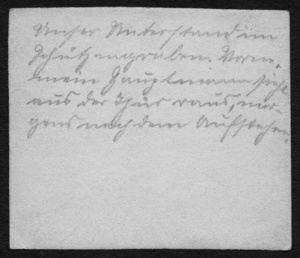 Unser Unterstand im
Schützengraben. Vorn,
mein Hauptmann sieht
aus der Thür raus, mor-
gens nach dem Aufstehen.